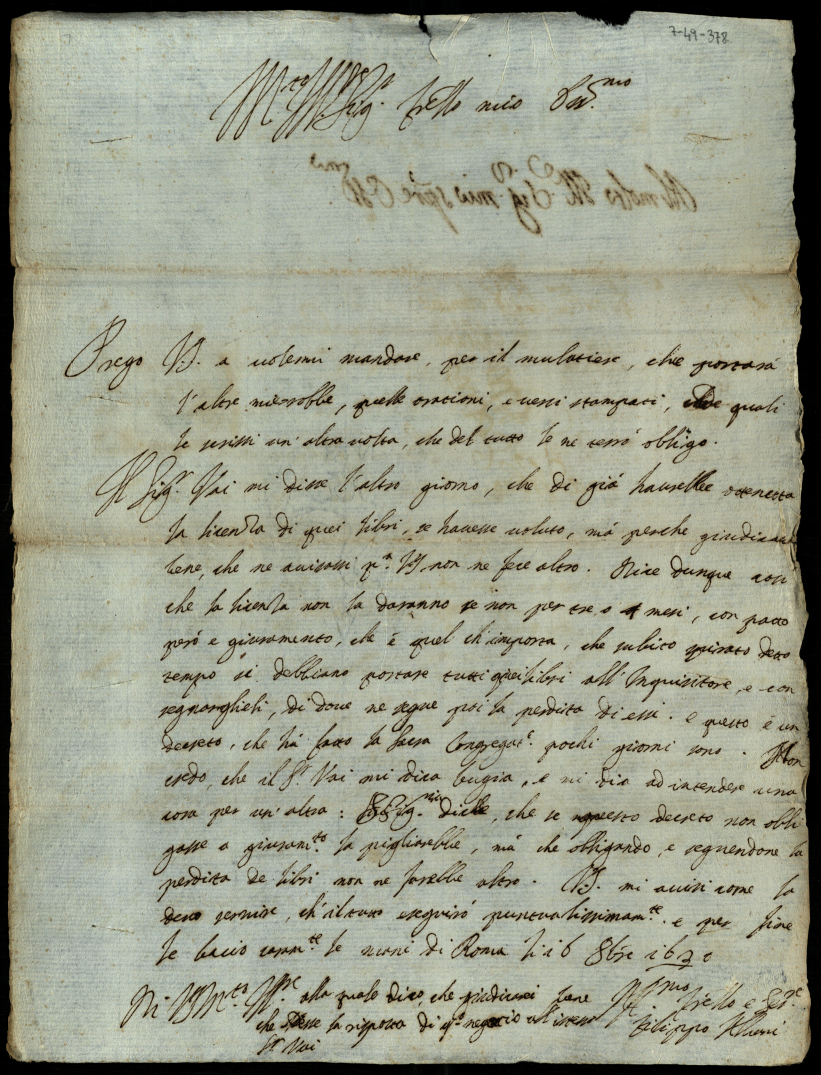 7-49-378
M.to Ill.re Sig.r frello mio Oss.mo
Al molto Ill. Sig. mio
Prego V.S. a volermi mandare, per il mulatiere, che portarà
l'altre mie robbe, quelle orationi, e versi stampati, de quali
le scrissi un'altra volta, che del tutto le ne terrò obligo.
Il Sig.r Vai mi disse l'altro giorno, che di già haurebbe ottenetta
la licenza di quei libri, se havesse voluto, mà perche giudicava
bene, che ne avisassi p.a V.S. non ne fece altro. Dice dunque così
che la licenza non la daranno se non per tre o 4 mesi, con patto
però e giuramento, che è quel ch'importa, che subito spirato detto
tempo si debbiano portare tutti quei libri all'Inquisitore, e con
segnarglieli, di dove ne segue poi la perdita di essi. e questo è un
decreto, che hà fatto la Sacra Congregat.e pochi giorni sono. Non
credo, che il S.r Vai mi dica bugia, e mi dia ad intendere una
cosa per un'altra: disse, che se questo decreto non obli
gasse a giuram.to la pigliarebbe, mà che obligando, e seguendone la
perdita de libri non ne farebbe altro. V.S. mi avisi come la
devo servire, ch'il tutto eseguirò puntualissimam.te e per fine
le bacio caram.te le mani di Roma li 16 8bre 1620
Di V.S. M.to Ill.re alla quale dico, che giudicarei bene
che desse la risposta di q.o negotio all'istesso
S.r Vai
Aff.mo frello e Ser.e
Filippo